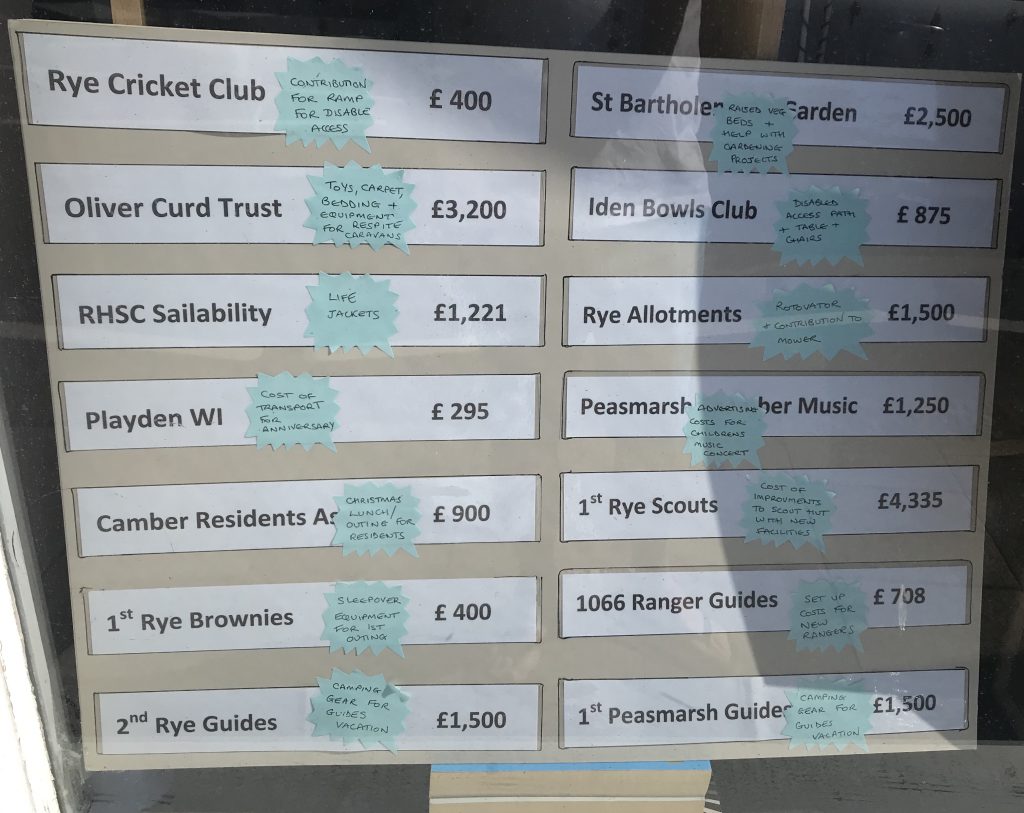 Rye Cricket Club
CONTRIBUTION
FOR RAMP
FOR DISABLE
ACCESS
£ 400
Oliver Curd Trust
TOYS, CARPET,
BEDDING +
EQUIPMENT
FOR RESPITE
CARAVANS
£3,200
RHSC Sailability
LIFE
JACKETS
£1,221
Playden WI
COST OF
TRANSPORT
FOR
ANNIVERSARY
£ 295
Camber Residents As
CHRISTMAS
LUNCH/
OUTING FOR
RESIDENTS
£ 900
1st Rye Brownies
SLEEPOVER
EQUIPMENT
FOR 1ST
OUTING
£ 400
2nd Rye Guides
CAMPING
GEAR FOR
GUIDES
VACATION
£1,500
St Bartholem Garden
RAISED VEG
BEDS +
HELP WITH
GARDENING
PROJECTS
£2,500
Iden Bowls Club
DISABLED
ACCESS PATH
+ TABLE +
CHAIRS
£ 875
Rye Allotments
ROTOVATOR
+ CONTRIBUTION TO
MOWER
£1,500
Peasmarsh ber Music
ADVERTISING
COSTS FOR
CHILDRENS
MUSIC
CONCERT
£1,250
1st Rye Scouts
COST OF
IMPROVMENTS
TO SCOUT HUT
WITH NEW
FACILITIES
£4,335
1066 Ranger Guides
SET UP
COSTS FOR
NEW
RANGERS
£ 708
1st Peasmarsh Guides
CAMPING
GEAR FOR
GUIDES
VACATION
£1,500